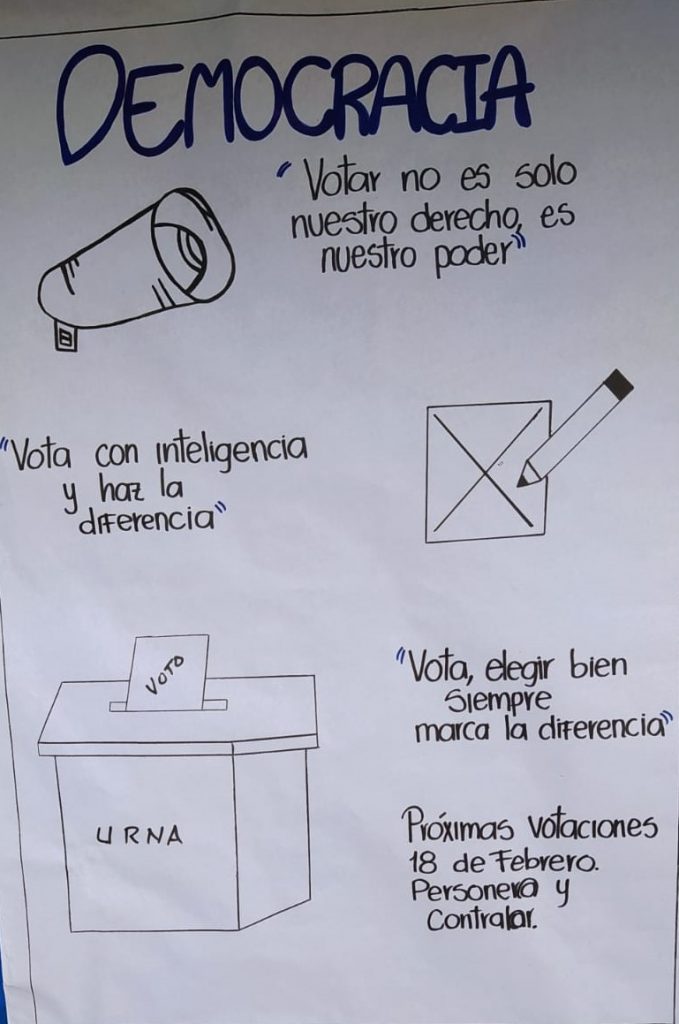 DEMOCRACIA
"Votar no es solo
nuestro derecho, es
nuestro poder"
"Vota con inteligencia
y haz la
diferencia"
VOTO
URNA
"Vota, elegir bien
siempre
marca la diferencia"
Próximas votaciones
18 de Febrero.
Personera y
Contralar.